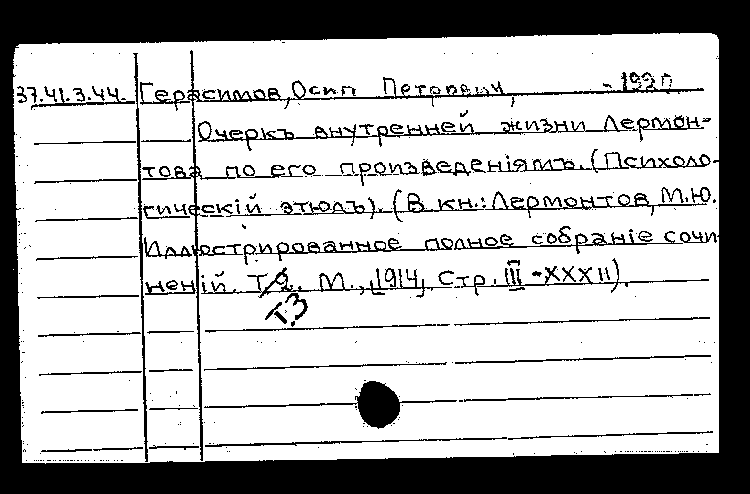 37.41.3.44. Герасимов, Осип Петрович, - 1920
Очеркъ внутренней жизни Лермон-
това по его произведенiямъ. (Психоло-
гическiй этюдъ). (В кн.: Лермонтов, М.Ю.
Иллюстрированное полное собранiе сочи-
ненiй. Т. 2. М., [1914]. Стр. III - XXXII).
Т.3